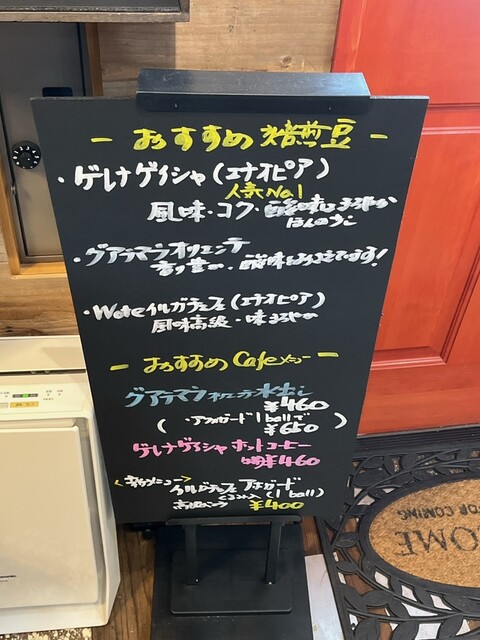 ー おすすめ 焙煎豆 ー
・ゲレナゲイシャ(エチオピア)
人気No1
風味・コク・酸味もまろやか
ほんのり
・グアテマラオリエンテ
香り豊か・酸味もおさえてます!
・Woteイルガチェフェ(エチオピア)
風味高級・味まろやか
ー おすすめ Cafeメニュー ー
グアテマラ 水出し
¥460
( アフォガード 1ballで
¥650 )
ゲレナゲイシャ ホットコーヒー
¥460
<新メニュー>
イルガチェフェ アフォガード
(1 ball)
¥400
FOR COMING
OME